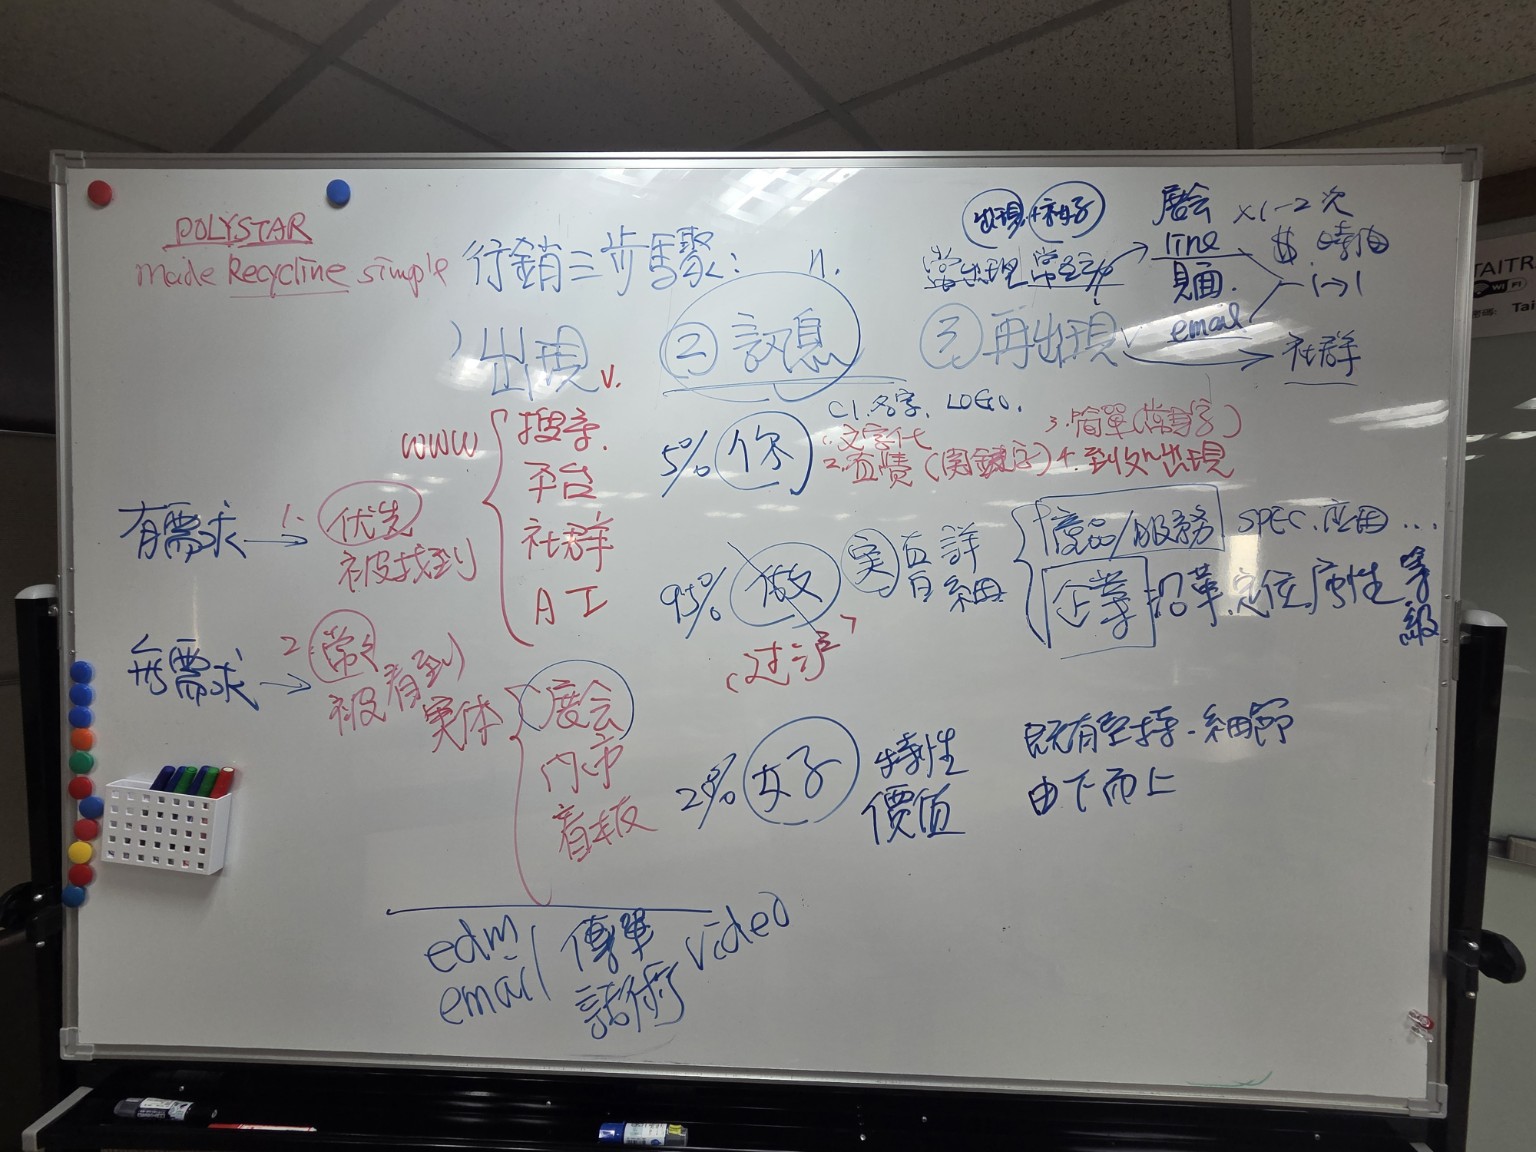 POLYSTAR
made Recycline simple
行銷三步驟:
n.
1) 出現
v.
② 訊息
出現+神奇
常出現 常互動
③ 再出現
展会 x1-2次
line
見面.
email
1→1
社群
www
搜尋.
平台
社群
AI
有需求 → 1. 优先
被找到
無需求 → 2. 常
被看到
実体
展会
门市
看板
5% 你
CI. 名字. LOGO.
1. 文字化
2. 直覺(関鍵字)
3. 简單(常事字)
4. 到处出現
95% 做
(过认)
実 直詳
白細
產品/服務 SPEC. 应用...
企業 沿革.定位.属性 等級
2% 好
特性
價值
既有堅持-細節
由下而上
edm
email
傳單
話術
video
TAITR
WiFi
Tai